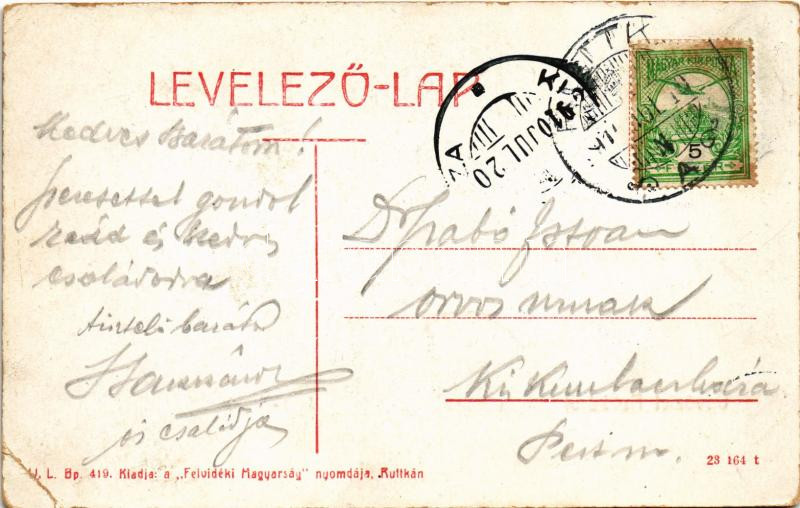 LEVELEZŐ-LAP
MAGYAR KIR. POSTA
5
910 JUL 20
ZA
Kedves Barátom!
szeretettel gondol
reád és kedves
családodra
tisztelő barátod
és családja
Dr Szabó Istvan
orvos urnak
Kis Kunlaczháza
Pest m.
U. L. Bp. 419. Kiadja: a „Felvidéki Magyarság” nyomdája, Ruttkán
23 164 t